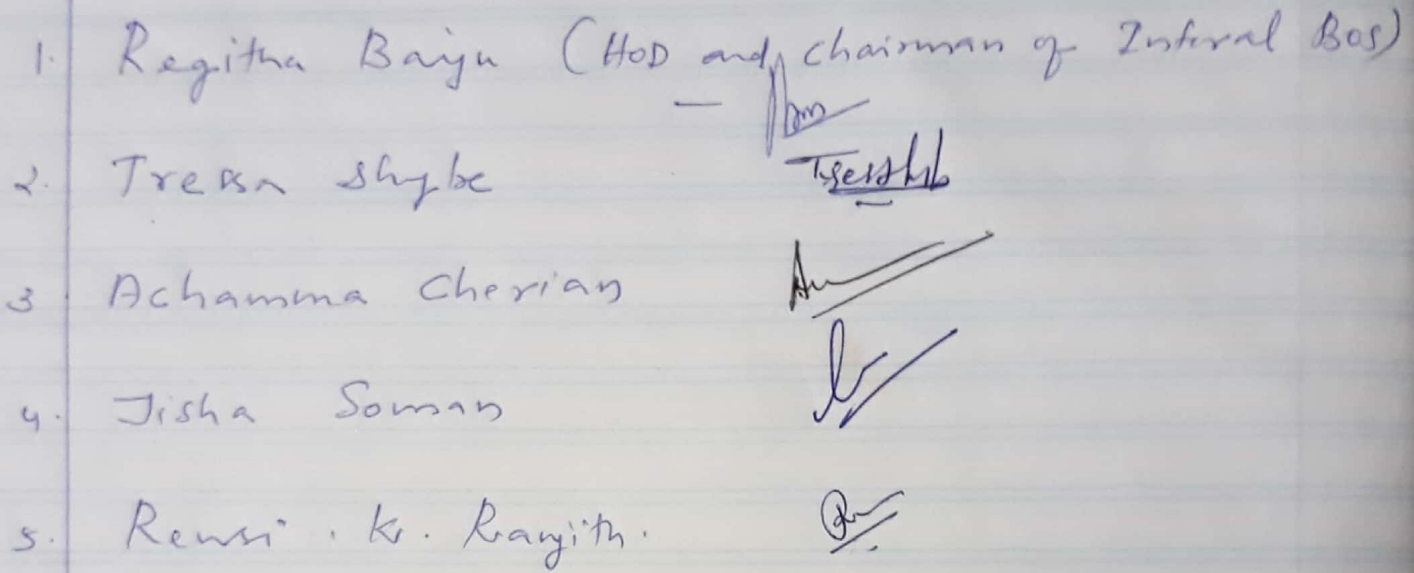 1. Regitha Baiju (HOD and chairman of Internal BOS)
2. Tressa Shybe
3. Achamma Cherian
4. Jisha Soman
5. Rensi. K. Ranjith.